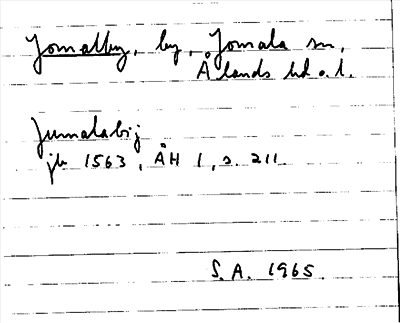 Jomalby, by, Jomala sn,
Ålands hd o. l.
Jumalabij
jb 1563, ÅH 1, s. 211
S.A. 1965.